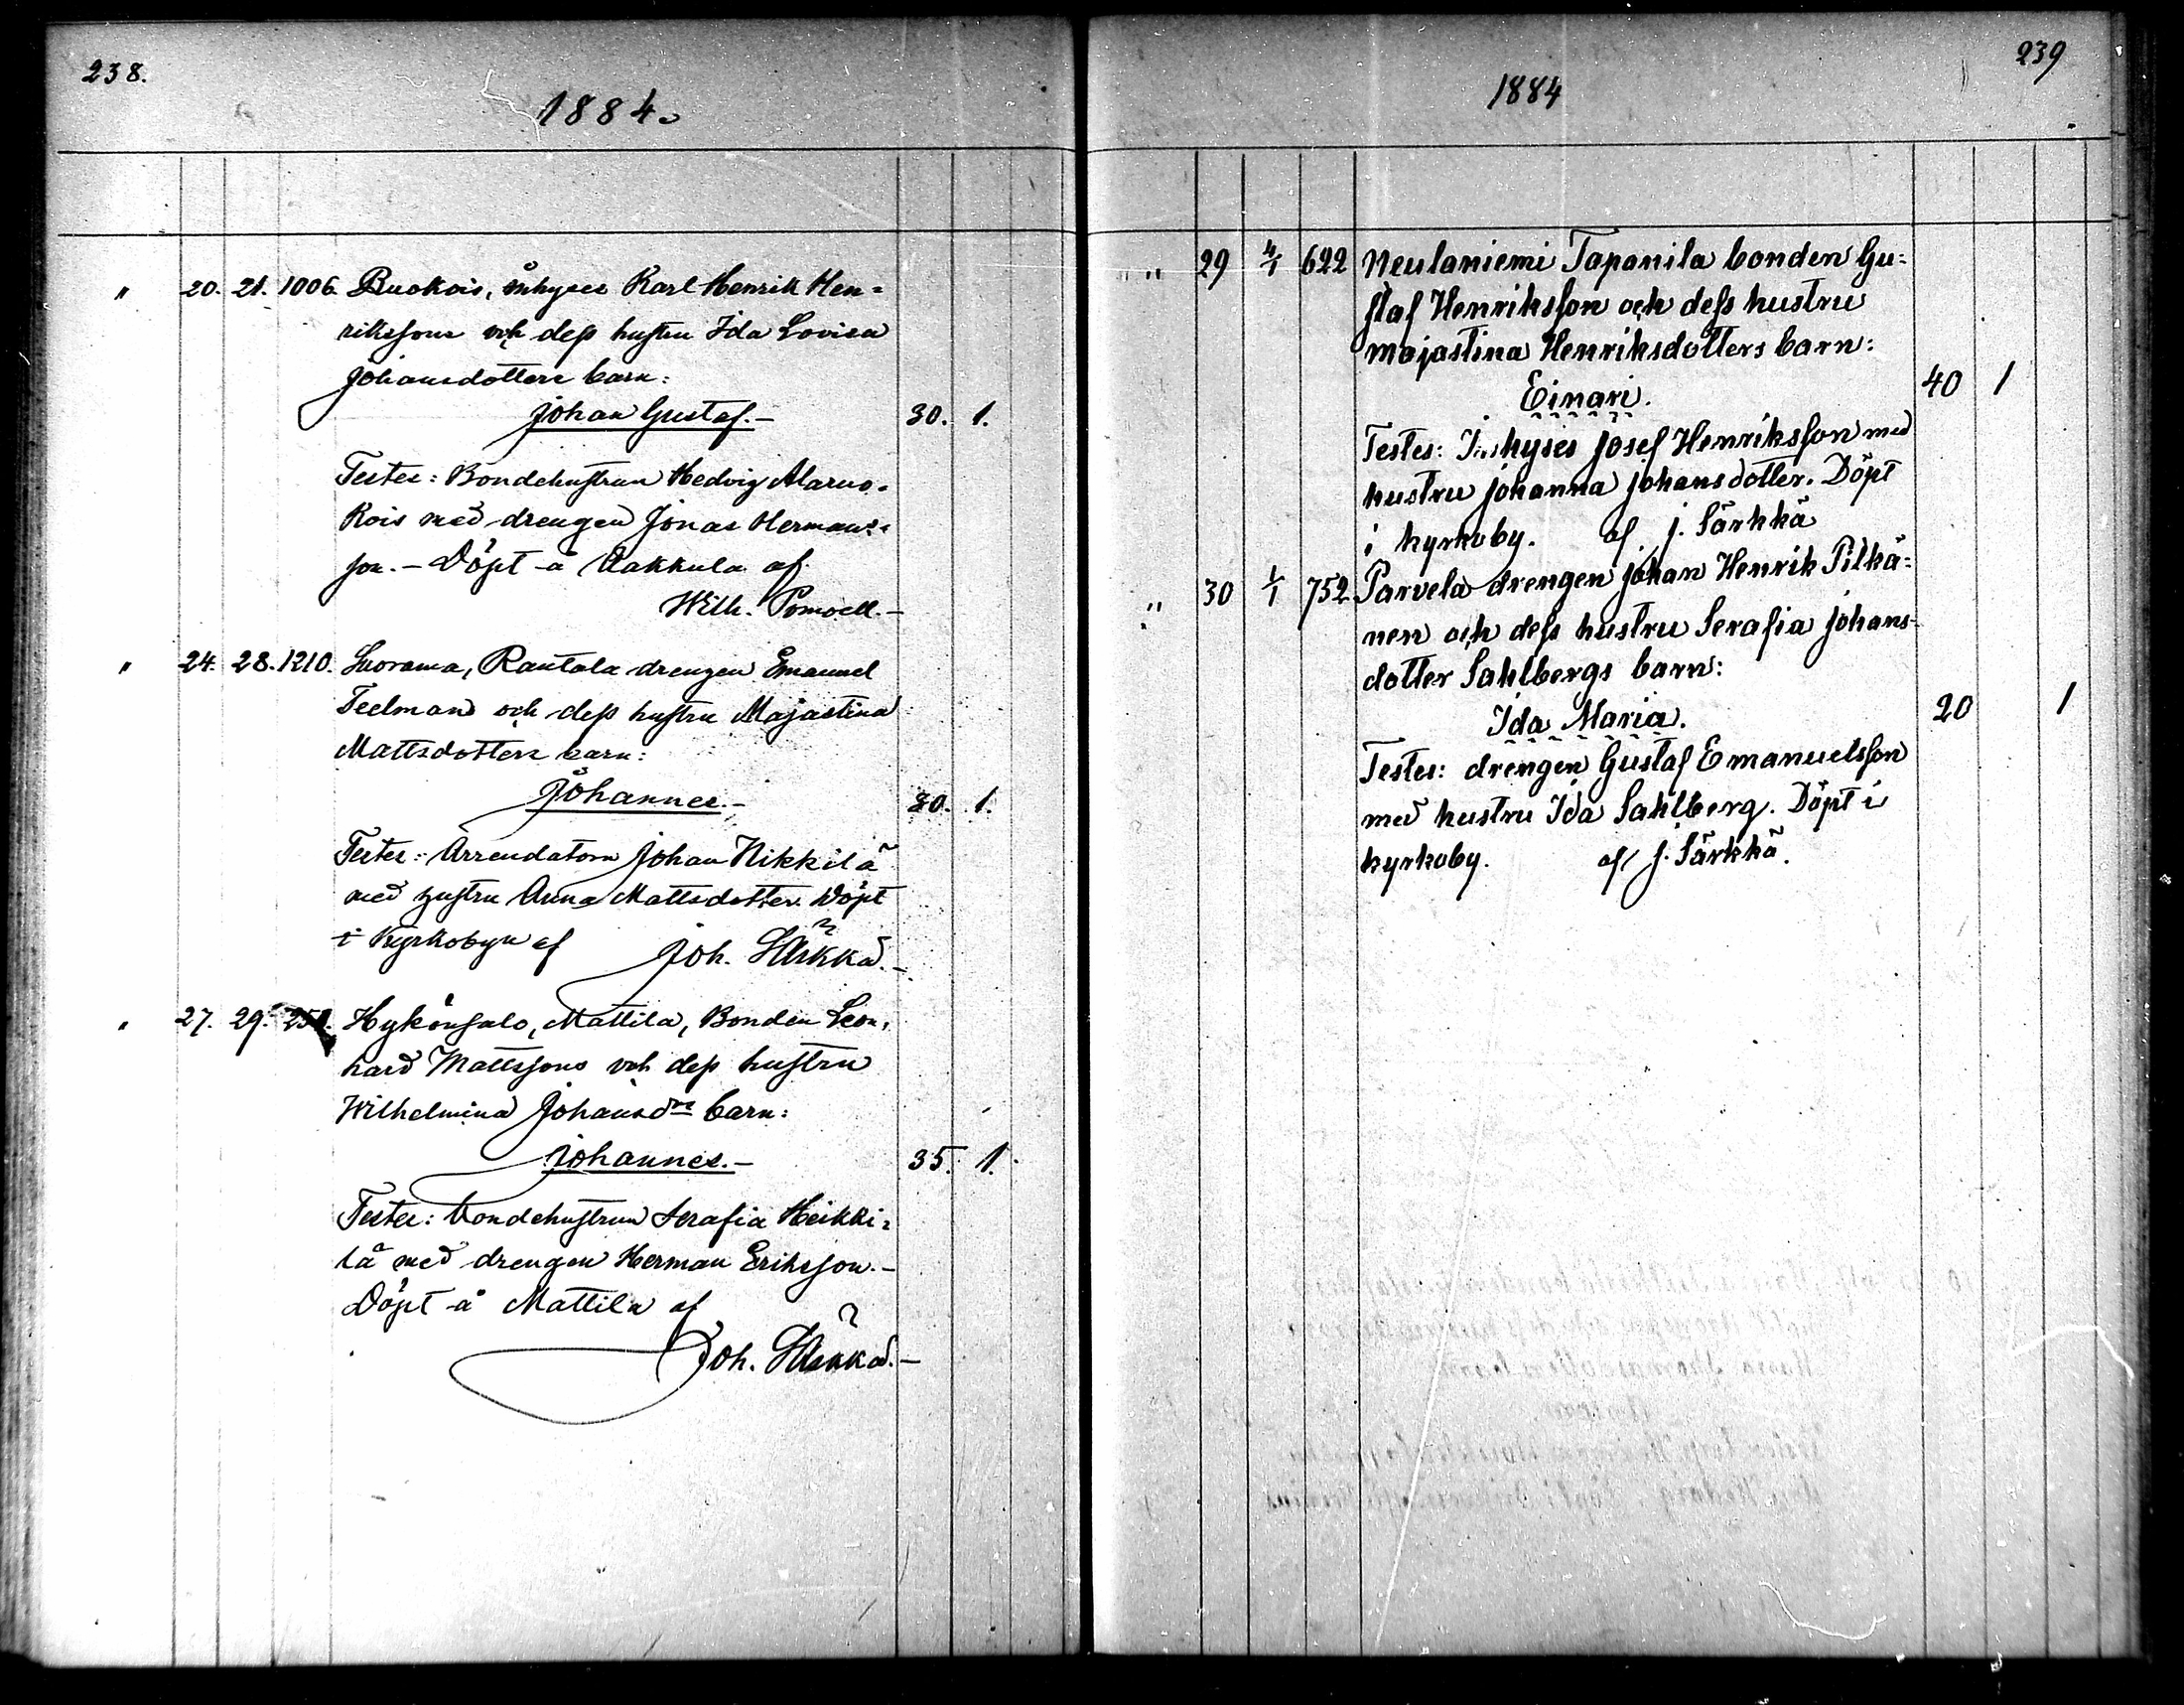 238.
1884.
" 20. 21. 1006. Ruokois, inhyses Karl Henrik Hen=
rikssons och dess hustru Ida Lovisa
Johansdotters barn:
Johan Gustaf.- 30. 1.
Testes: Bondehustrun Hedvig Alaruo=
kois med drengen Jonas Hermans=
son. - Döpt å Aakkula af
Wilh. Pomoell.-
" 24. 28. 1210. Suorama, Rantala drengen Emanuel
Teelmans och dess hustru Majastina
Mattsdotters barn:
Johannes.- 30. 1.
Testes: Arrendatorn Johan Nikkilä
med hustru Anna Mattsdotter. Döpt
i Kyrkobyn af Joh. Särkkä.-
" 27. 29. Hykönsalo, Mattila, Bonden Leon=
hard Mattssons och dess hustru
Wilhelmina Johansdrs barn:
Johannes.- 35. 1.
Testes: bondehustrun Serafia Heikki=
lä med drengen Herman Eriksson.-
Döpt å Mattila af
Joh. Särkkä.-
239
1884
" 29 4/1 622 Neulaniemi Tapanila bonden Gu=
staf Henriksson och dess hustru
Majastina Henriksdotters barn:
Einari. 40 1
Testes: Inhyses Josef Henriksson med
hustru Johanna Johansdotter. Döpt
i kyrkoby. af J. Särkkä
" 30 1/1 752 Parvela drengen Johan Henrik Pilkä=
nen och dess hustru Serafia Johans=
dotter Sahlbergs barn:
Ida Maria. 20 1
Testes: drengen Gustaf Emanuelsson
med hustru Ida Sahlberg. Döpt i
kyrkoby. af J. Särkkä.